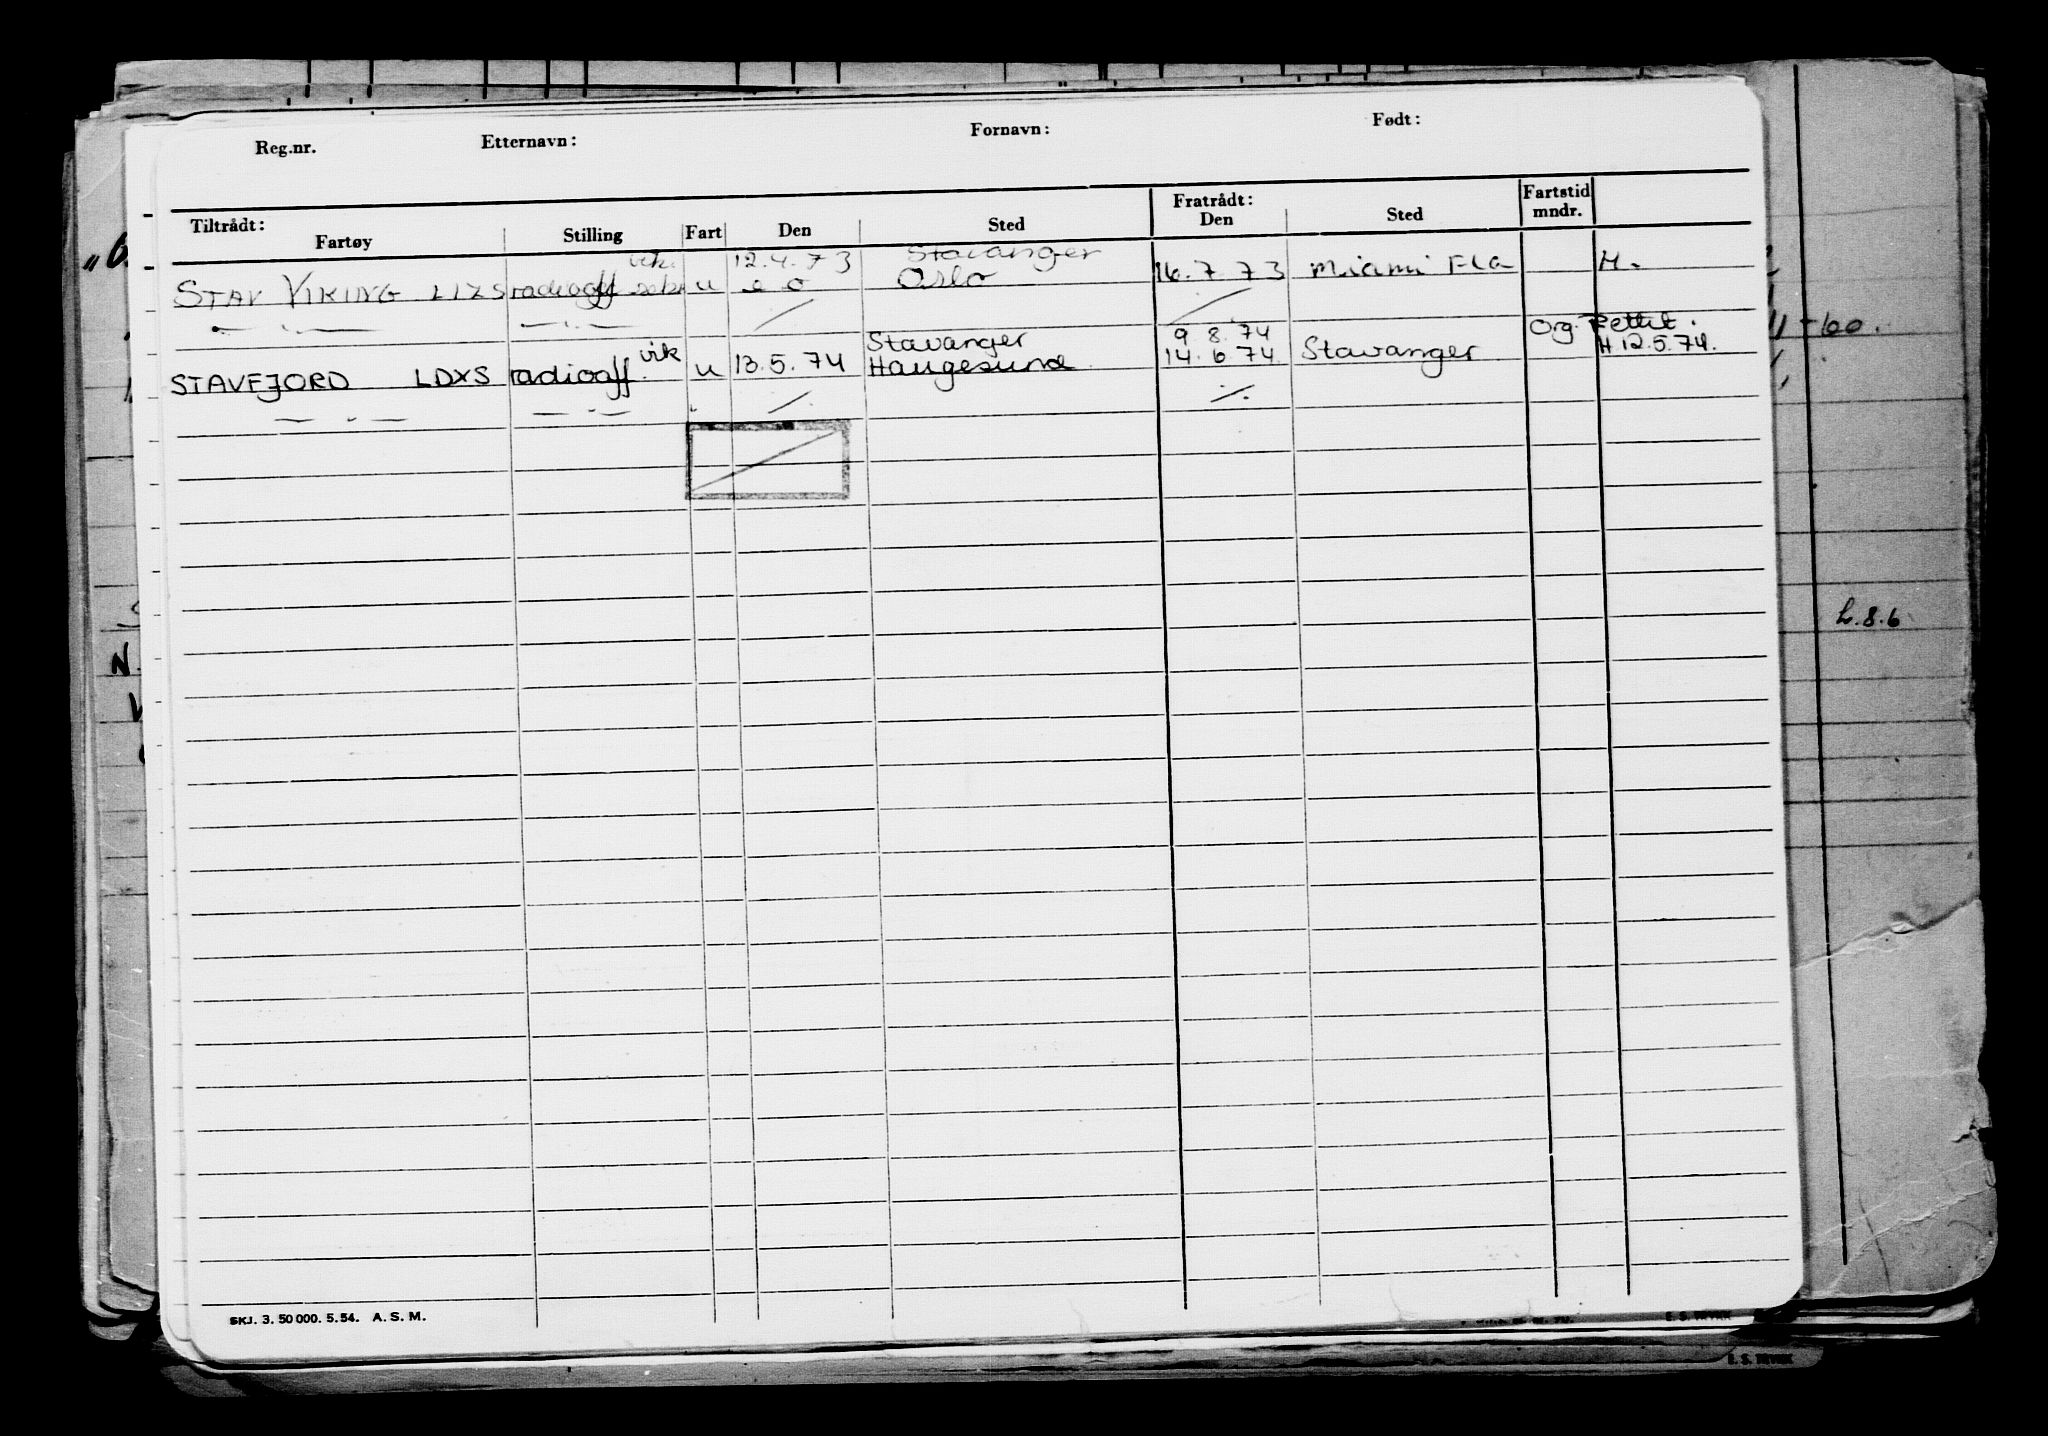 Reg.nr. Etternavn: Fornavn: Født:
Tiltrådt: Fratrådt: Fartstid
Fartøy Stilling Fart Den Sted Den Sted mndr.
vik. 12.4.73 Stavanger
STAV VIKING LIZS radiooff u Oslo 16.7.73 Miami Fla H.
— " — — " —
Stavanger 9 8.74 Org. Rettet.
STAVFJORD LDXS radiooff. vik u 13.5.74 Haugesund 14.6.74 Stavanger H 12.5.74.
— " — — " — "
60.
L.8.6
N.
SKJ. 3. 50 000. 5. 54. A. S. M.
E. S. TRYKK
E. S. TRYKK